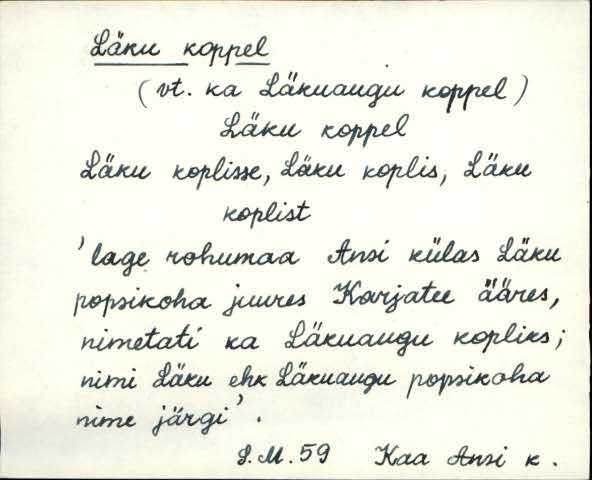 Läku koppel
(vt. ka Läkuaugu koppel)
Läku koppel
Läku koplisse, Läku koplis, Läku
koplist
'lage rohumaa Ansi külas Läku
popsikoha juures Karjatee ääres,
nimetati ka Läkuaugu kopliks;
nimi Läku ehk Läkuaugu popsikoha
nime järgi'.
S.M. 59 Kaa Ansi k.